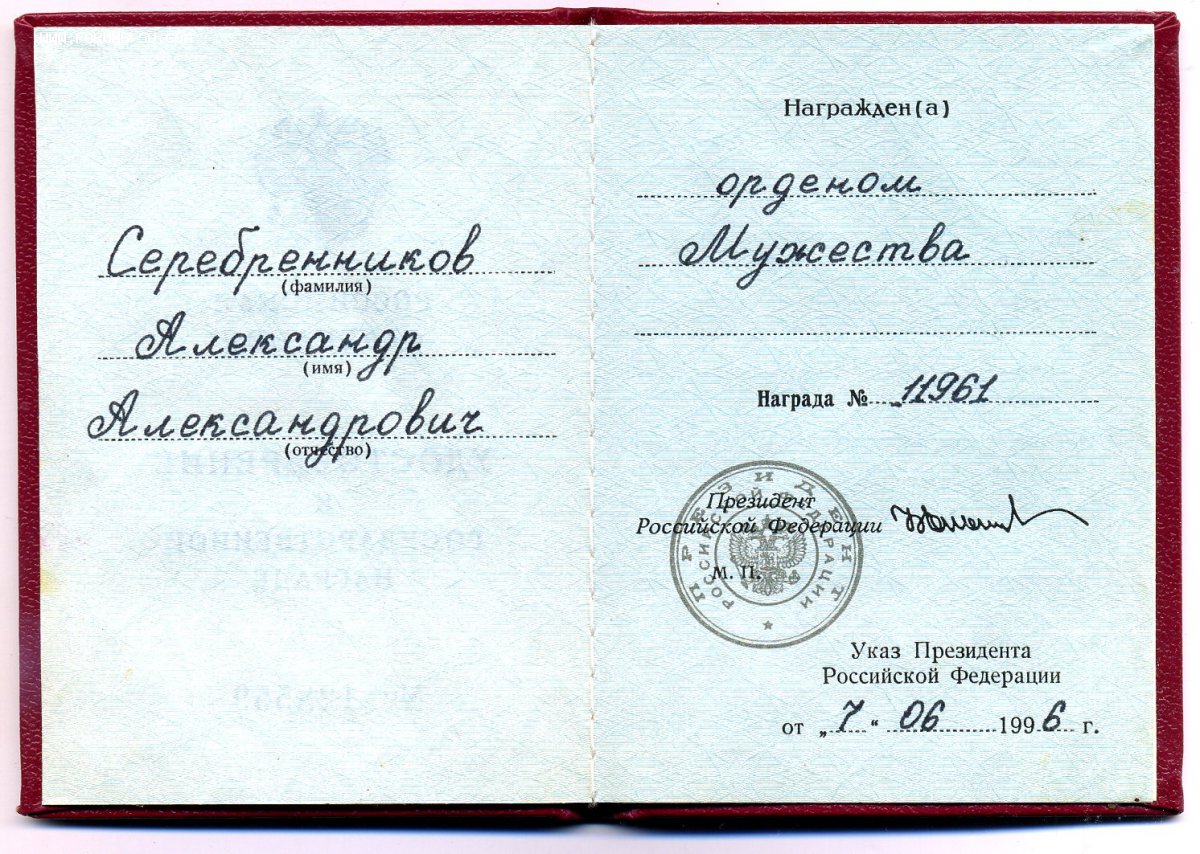 Серебренников
(фамилия)
Александр
(имя)
Александрович
(отчество)
Награжден(а)
орденом
Мужества
Награда № 11961
Президент
Российской Федерации
М. П.
ПРЕЗИДЕНТ
РОССИЙСКОЙ ФЕДЕРАЦИИ
Указ Президента
Российской Федерации
от „7“ 06 1996 г.